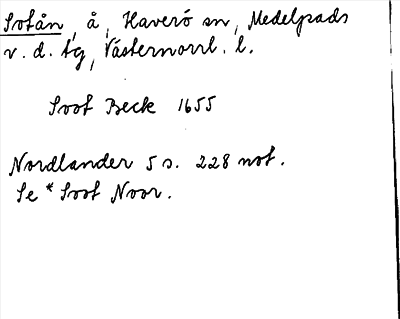 Sotån, å, Haverö sn, Medelpads
v. d. tg, Västernorrl. l.
Soot Beck 1655
Nordlander 5 s. 228 not.
Se *Soot Noor.